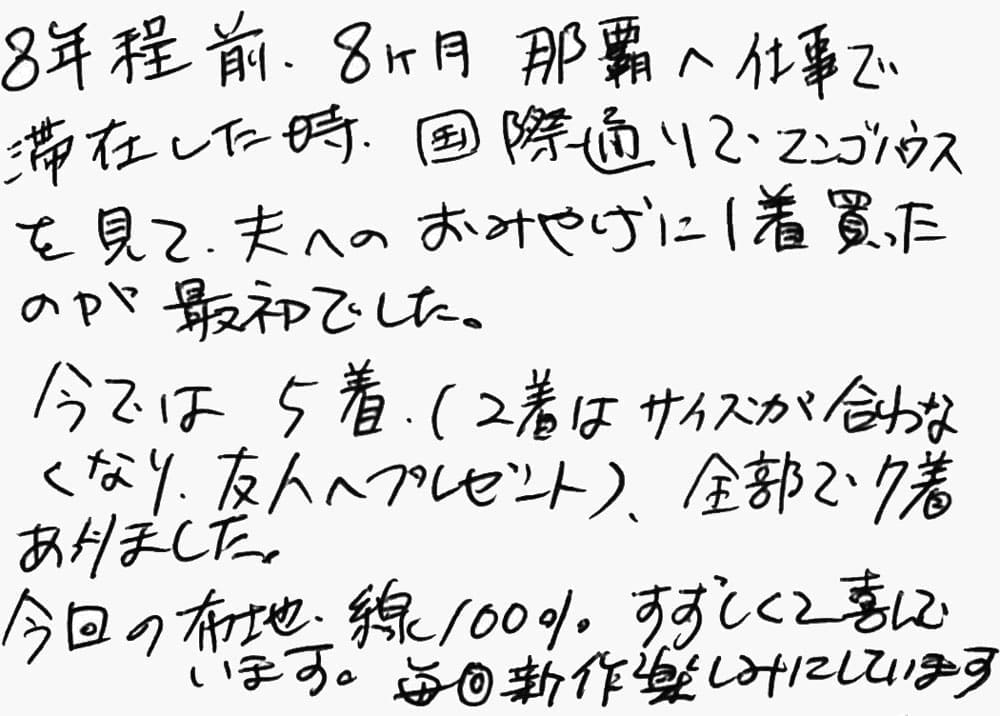 8年程前、8ヶ月 那覇へ仕事で
滞在した時、国際通りで、マンゴハウス
を見て、夫へのおみやげに1着買った
のが最初でした。
今では 5着、(2着はサイズが合わな
くなり、友人へプレゼント)、全部で7着
ありました。
今回の布地、綿100%。すずしくて喜んで
います。毎回新作楽しみにしています